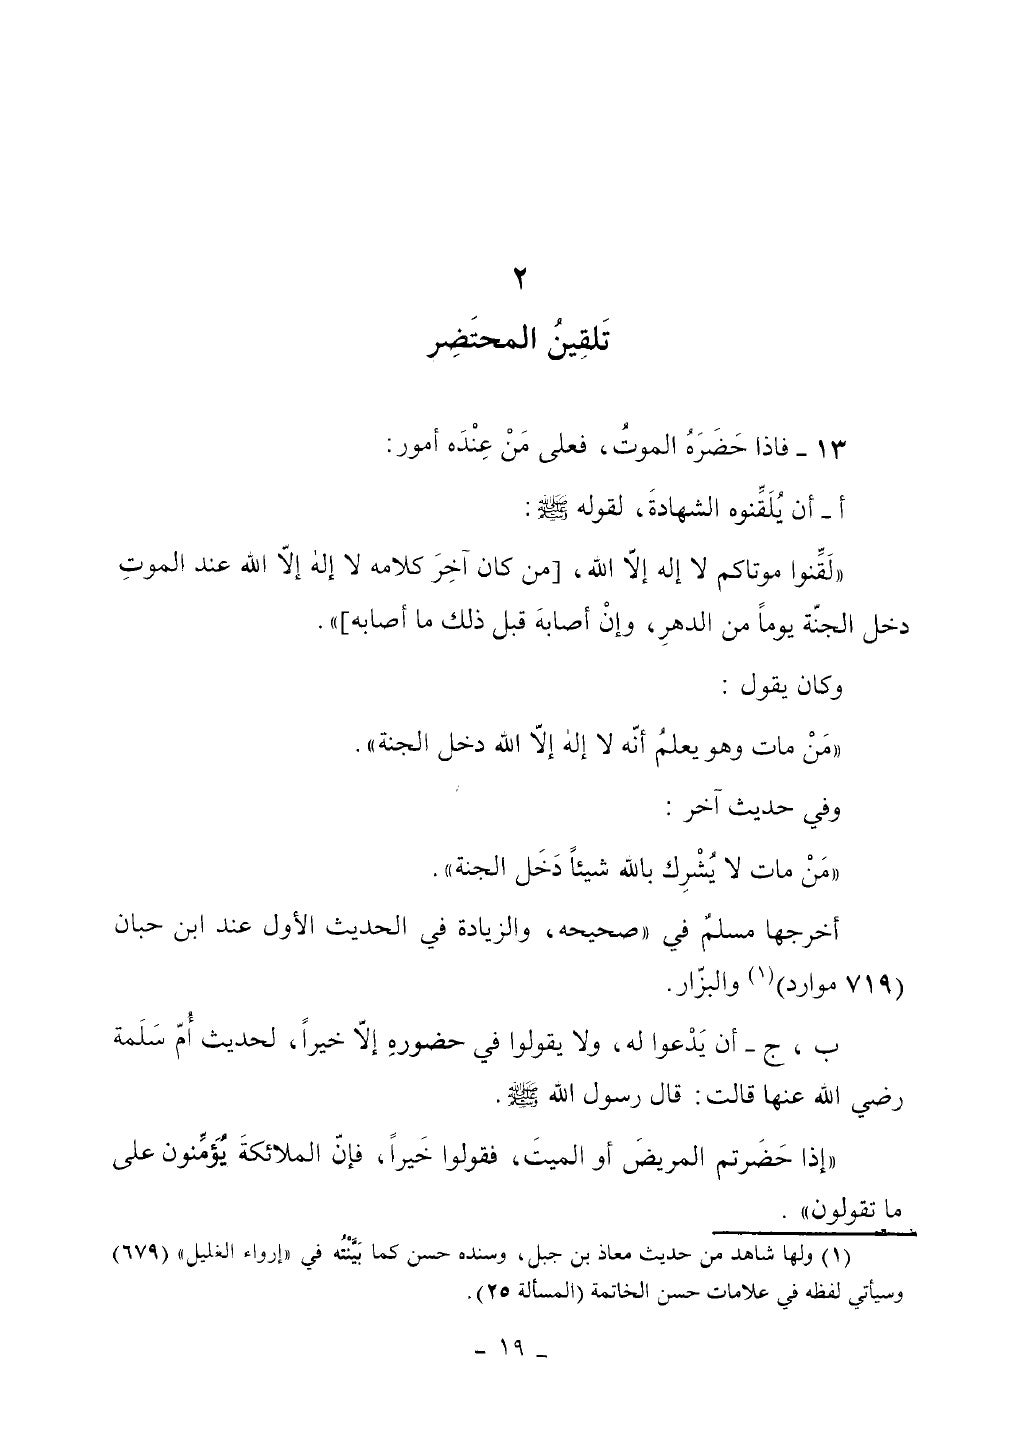 ٢
تَلقِينُ المحتَضِر
١٣ ـ فاذا حَضَرَهُ الموتُ، فعلى مَنْ عِنْدَه أمور:
أ ـ أن يُلَقِّنوه الشهادةَ، لقوله ﷺ:
«لَقِّنوا موتاكم لا إله إلّا الله، [من كان آخِرَ كلامه لا إلهٰ إلّا الله عند الموتِ
دخل الجنّة يوماً من الدهرِ، وإنْ أصابهَ قبل ذلك ما أصابه]».
وكان يقول :
«مَنْ مات وهو يعلمُ أنّه لا إلهٰ إلّا الله دخل الجنة».
وفي حديث آخر :
«مَنْ مات لا يُشْرِك بالله شيئاً دَخَل الجنة».
أخرجها مسلمٌ في «صحيحه، والزيادة في الحديث الأول عند ابن حبان
(٧١٩ موارد)(١) والبزّار.
ب ، ج ـ أن يَدْعوا له، ولا يقولوا في حضورهِ إلّا خيراً، لحديث أُمّ سَلَمة
رضي الله عنها قالت: قال رسول الله ﷺ.
«إذا حَضَرتم المريضَ أو الميتَ، فقولوا خَيراً، فإنّ الملائكةَ يُؤَمِّنون على
ما تقولون» .
(١) ولها شاهد من حديث معاذ بن جبل، وسنده حسن كما بَيَّنْتُه في «إرواء الغليل» (٦٧٩)
وسيأتي لفظه في علامات حسن الخاتمة (المسألة ٢٥).
ـ ١٩ ـ